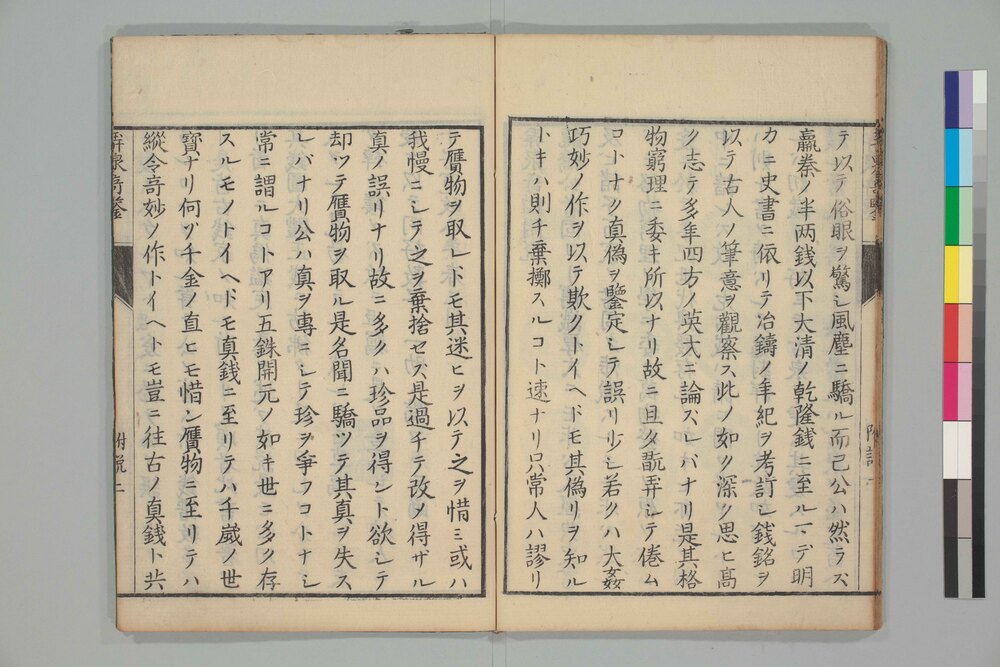 テ以テ俗眼ヲ驚シ風塵ニ驕ル而己公ハ然ラズ
嬴秦ノ半两銭以下大清ノ乾隆銭ニ至ルマデ明
カニ史書ニ依リテ冶鑄ノ年紀ヲ考訂シ銭銘ヲ
以テ古人ノ筆意ヲ觀察ス此ノ如ク深ク思ヒ高
ク志テ多年四方ノ英才ニ論ズレバナリ是其格
物窮理ニ委キ所以ナリ故ニ旦タ翫弄シテ倦ム
コトナク真偽ヲ鑒定シテ誤リ少シ若クハ大姦
巧妙ノ作ヲ以テ欺クトイヘドモ其偽リヲ知ル
トキハ則チ棄擲スルコト速ナリ只常人ハ謬リ
テ贋物ヲ取レドモ其迷ヒヲ以テ之ヲ惜ミ或ハ
我慢ニシテ之ヲ棄捨セズ是過チテ改メ得ザル
真ノ誤リナリ故ニ多クハ珍品ヲ得ント欲シテ
却ツテ贋物ヲ取ル是名聞ニ驕ツテ其真ヲ失ス
レバナリ公ハ真ヲ專ニシテ珍ヲ爭フコトナシ
常ニ謂ルコトアリ五銖開元ノ如キ世ニ多ク存
スルモノトイヘドモ真銭ニ至リテハ千歳ノ世
寳ナリ何ゾ千金ノ直ヒモ惜ン贋物ニ至リテハ
縱令竒妙ノ作トイヘトモ豈ニ往古ノ真銭ト共
附説二